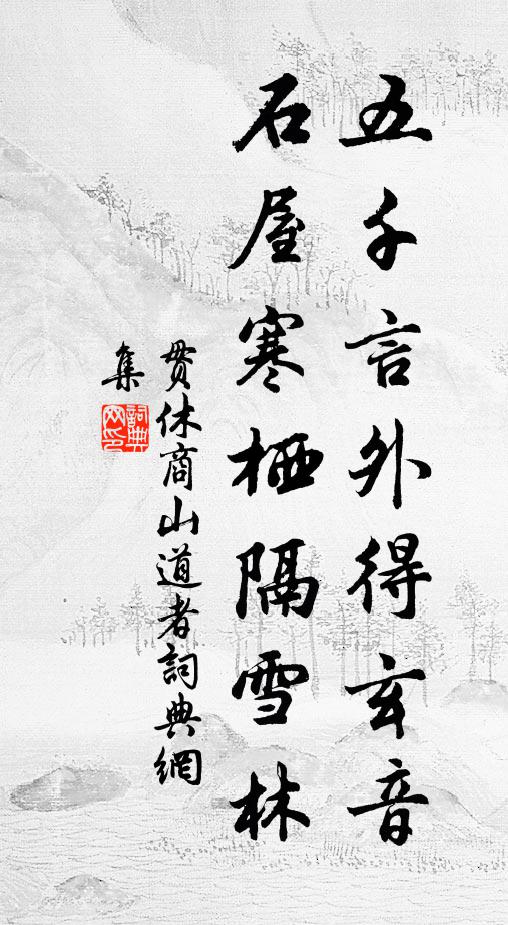 五千言外得玄音
石屋寒栖隔雪林
贯休商山道者詞典網
集
詞典
网印